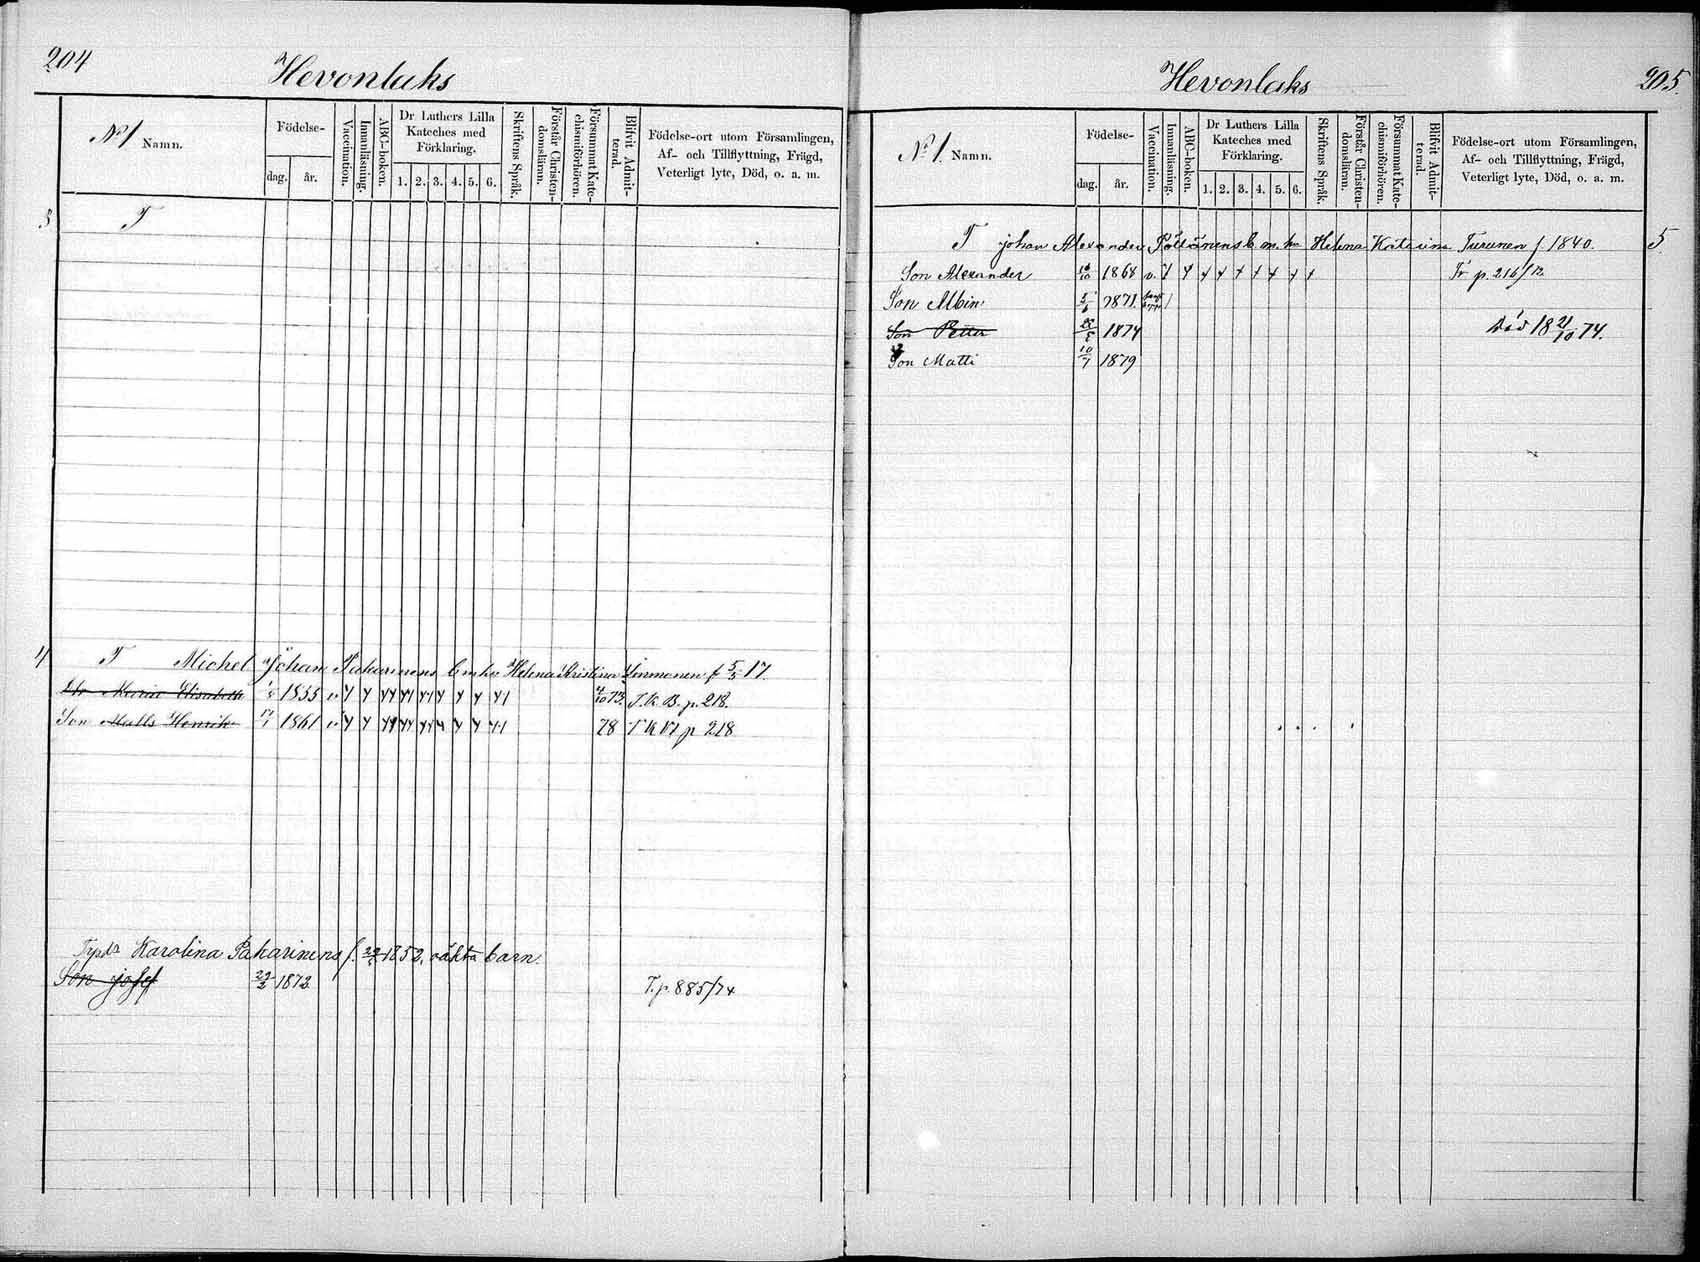 204
Hevonlaks
N:o 1 Namn.
Födelse-
dag. år.
Vaccination.
Innanläsning.
ABC-boken.
Dr Luthers Lilla Kateches med Förklaring.
1. 2. 3. 4. 5. 6.
Skriftens Språk.
Förstår Christendomslärnn.
Försummat Katechismiförhören.
Blifvit Admitterad.
Födelse-ort utom Församlingen, Af- och Tillflyttning, Frägd, Veterligt lyte, Död, o. a. m.
3 T
4 T Michel Johan Pakarinens b m. hu Helena Kristina Simonen f 5/5 17.
Dr Maria Elisabeth 1855 v 4/10 73. T. K. B. p. 218.
Son Matts Henrik 1861 v 78 T K B p 218
Karolina Pakarinens f. 1852, oäkta barn.
Son Josef 1872 T. p. 885/74
205.
Hevonlaks
N:o 1. Namn.
Födelse-
dag. år.
Vaccination.
Innanläsning.
ABC-boken.
Dr Luthers Lilla Kateches med Förklaring.
1. 2. 3. 4. 5. 6.
Skriftens Språk.
Förstår Christendomslärnn.
Försummat Katechismiförhören.
Blifvit Admitterad.
Födelse-ort utom Församlingen, Af- och Tillflyttning, Frägd, Veterligt lyte, Död, o. a. m.
T Johan Alexander Pöllänens b. m. hu Helena Katrina Turunen f 1840. 5
Son Alexander 1868 v. Fr p. 216/12
Son Albin 5/6 1871.
Son Petter 1874 Död 18 21/10 74.
Son Matti 10/7 1879